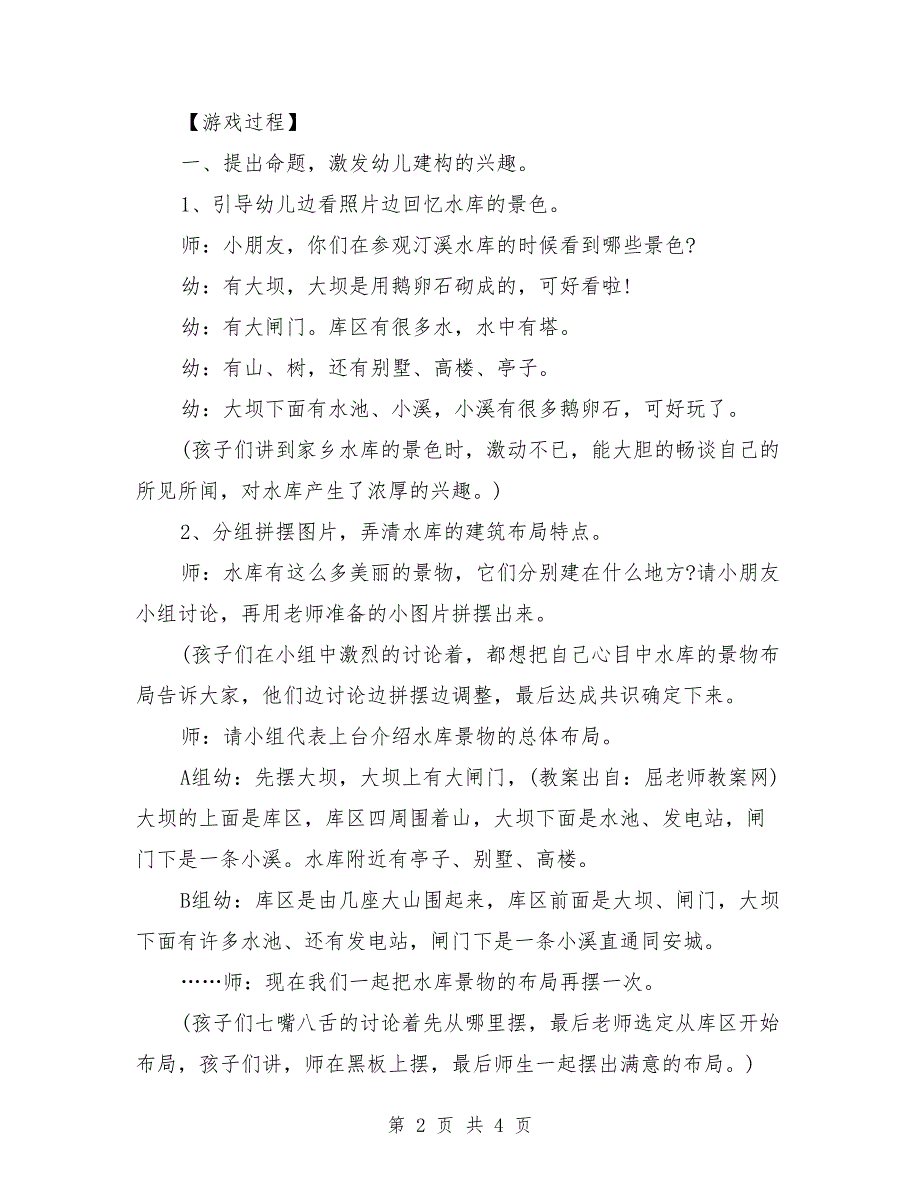 【游戏过程】
一、提出命题，激发幼儿建构的兴趣。
1、引导幼儿边看照片边回忆水库的景色。
师：小朋友，你们在参观汀溪水库的时候看到哪些景色?
幼：有大坝，大坝是用鹅卵石砌成的，可好看啦!
幼：有大闸门。库区有很多水，水中有塔。
幼：有山、树，还有别墅、高楼、亭子。
幼：大坝下面有水池、小溪，小溪有很多鹅卵石，可好玩了。
(孩子们讲到家乡水库的景色时，激动不已，能大胆的畅谈自己的
所见所闻，对水库产生了浓厚的兴趣。)
2、分组拼摆图片，弄清水库的建筑布局特点。
师：水库有这么多美丽的景物，它们分别建在什么地方?请小朋友
小组讨论，再用老师准备的小图片拼摆出来。
(孩子们在小组中激烈的讨论着，都想把自己心目中水库的景物布
局告诉大家，他们边讨论边拼摆边调整，最后达成共识确定下来。
师：请小组代表上台介绍水库景物的总体布局。
A组幼：先摆大坝，大坝上有大闸门，(教案出自：屈老师教案网)
大坝的上面是库区，库区四周围着山，大坝下面是水池、发电站，闸
门下是一条小溪。水库附近有亭子、别墅、高楼。
B组幼：库区是由几座大山围起来，库区前面是大坝、闸门，大坝
下面有许多水池、还有发电站，闸门下是一条小溪直通同安城。
……师：现在我们一起把水库景物的布局再摆一次。
(孩子们七嘴八舌的讨论着先从哪里摆，最后老师选定从库区开始
布局，孩子们讲，师在黑板上摆，最后师生一起摆出满意的布局。)
第 2 页 共 4 页